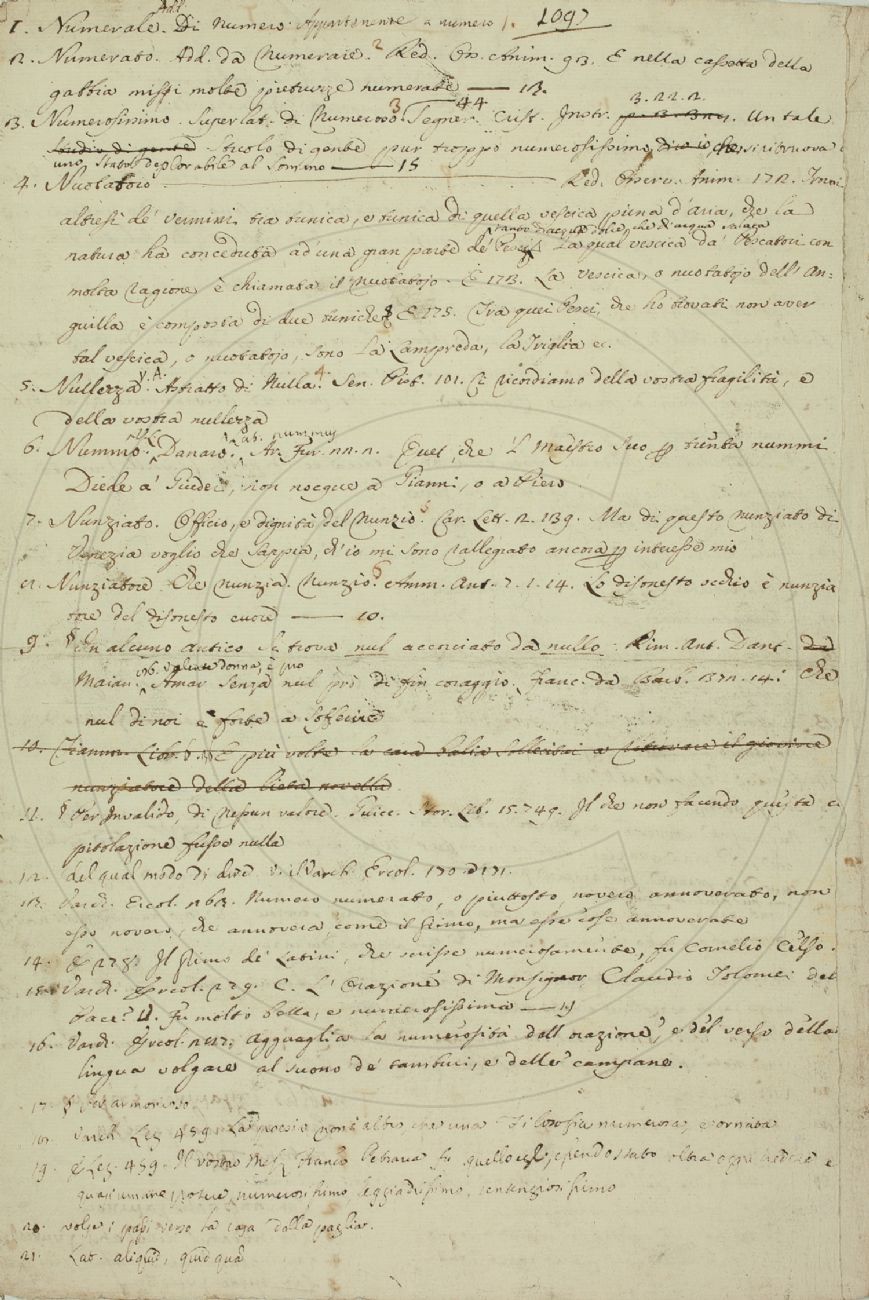 1097
Add.
1. Numerale. Di numero. Appartenente a numero
2. Numerato. Add. da Numerare. 2 Red. Os. Anim. 93. E nella cassetta della
gabbia missi molte pietruzze numerate —— 13.
3. 22. 2.
3. Numerosissimo. Superlat. di Numeroso. 3 Segner. Crist. Instr. Un tale
stuolo di gente pur troppo numerosissimo, che si ritruova
uno stato deplorabile al sommo —— 15
4. Nuotatoio —— Red. Osserv. Anim. 172. Trovai
altresì de' vermini tra tunica, e tunica di quella vescica piena d'aria, che la
tanto d'acqua dolce, che di acqua salata
natura ha conceduta ad una gran parte de' Pesci. La qual vescica da' Pescatori con
molta ragione è chiamata il Nuotatojo. E 173. La vescica, o nuotatojo dell'An=
guilla è composta di due tuniche § E 175. Tra quei Pesci, che ho trovati non aver
tal vescica, o nuotatojo, sono la Lampreda, la Triglia ec.
5. Nullezza. V. A. Astratto di Nulla. 4 Sen. Pist. 101. Ci ricordiamo della vostra fragilità, e
della vostra nullezza
6. Nummo. Danaro. Lat. nummus Ar. Fur. 22. 2. Quel, che 'l Maestro suo per trenta nummi
Diede a' Giudei, non nocque a Gianni, o a Piero.
7. Nunziato. Officio, e dignità del Nunzio. 5 Car. Lett. 2. 139. Ma di questo nunziato di
Venezia voglio che sappia, ch'io mi sono rallegrato ancora per interesse mio
8. Nunziatore. Che nunzia. Nunzio. 6 Amm. Ant. 7. 1. 14. Lo disonesto occhio è nunzia
tore del disonesto cuore —— 10.
9. § In alcuno antico si trova nul accorciato da nullo. Rim. Ant. Dant. da
Maian. Amar senza nul prò di fin coraggio. Franc. da Barb. 372. 14: Che
nul di noi è forte a sofferire
10. Libr. E più volte la cara balia sollicitai a ritrovare il giovine
nunziatore della lieta novella
11. § Per Invalido, di nessun valore. Guicc. Stor. lib. 15. 749. Il che non facendo questa ca
pitolazione fusse nulla
12. del qual modo di dire v. il Varch. Ercol. 170. 171.
13. Varch. Ercol. 263. Numero numerato, o piuttosto novero annoverato, non
esso novero, che annovera, come il primo, ma esse cose annoverate
14. E 278. Il primo de' Latini, che scrisse numerosamente, fu Cornelio Celso.
15. Varch. Ercol. 29. C. L'Orazione di Monsignor Claudio Tolomei del
Pace? U. Fu molto bella, e numerosissima —— 19
16. Varch. Ercol. Agguaglia la numerosità dell'orazione, e del verso della
lingua volgare al suono de' tamburi, e delle campane.
17. § Per armonioso
18. Varch. Lez. 459. La poesia non è altro che una Filosofia numerosa, e ornata
19. E Lez. 459. Il vostro Mess. Franc. Petrarca fu quello, che essendo stato oltra ogni credere e
quasi umano potere, numerosissimo, leggiadrissimo, sentenziosissimo
20. volge i passi verso la casa della paglia.
21. Lat. aliquid, quidquam